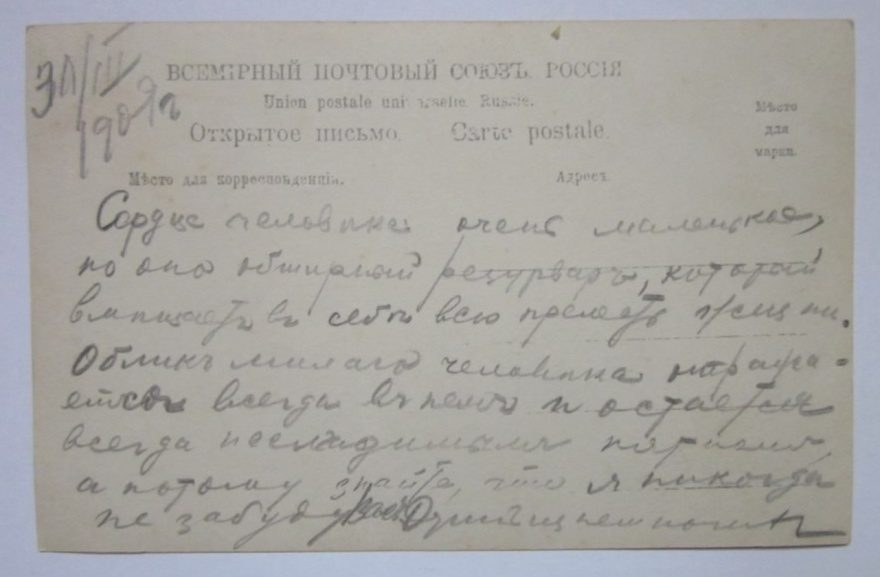 30/III
1909 г
ВСЕМІРНЫЙ ПОЧТОВЫЙ СОЮЗЪ. РОССІЯ
Union postale universelle. Russie.
Открытое письмо. Carte postale.
Мѣсто
для
марки.
Мѣсто для корреспонденціи.
Адресъ
Сердце человѣка очень маленькое,
но оно обширный резурваръ, который
вмѣщаетъ въ себѣ всю прелесть жизни.
Обликъ милаго человѣка отража=
ется всегда въ немъ и остается
всегда неизгладимымъ
а потому знайте, что я никогда
не забуду Васъ